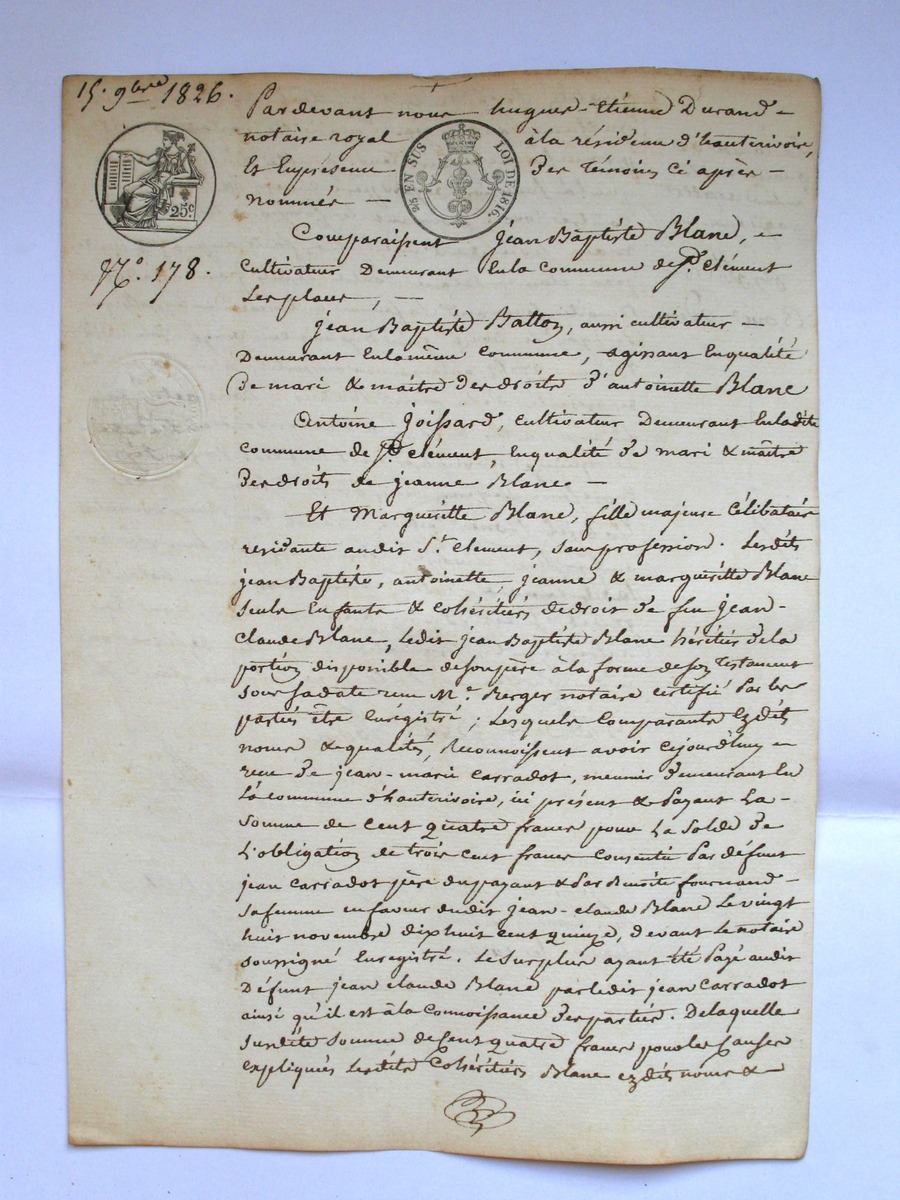 15. 9bre 1826.
Pardevant nous hugues-Etienne Durand -
notaire royal à la résidence d'hauterivoire,
Et En présence Des témoins Cé après -
nommés -
25 EN SUS LOI DE 1816.
25c
Comparaissent Jean Baptiste Blanc, -
N.o 178.
Cultivateur Demeurant En la Commune de St. clément
Les places, -
Jean Baptiste Batton, aussi cultivateur -
Demeurant En la même commune, agissant En qualité
De mari & maître des droits d'antoinette Blanc
Antoine Joissard, cultivateur Demeurant En ladite
commune de St. clément, En qualité de mari & maître
Des droits de jeanne Blanc -
Et Margueritte Blanc, fille majeure Célibataire
residante audit St. clement, sans profession. Lesdits
jean Baptiste, antoinette, jeanne & margueritte Blanc
seuls Enfants & cohéritiers de droit de feu jean-
Claude Blanc, Ledit jean Baptiste Blanc héritier de la
portion disponible de son père à la forme de son testament
sous sa date recu Me. Berger notaire certifié Par les
parties être Enrégistré; Lesquels Comparants Ezdits
noms & qualités, Reconnoissent avoir cejourd'huy -
recu de jean-marie carradot, meunier demeurant En
La commune d'hauterivoire, ici présent & Payant La -
somme de cent quatre francs pour La Solde de
L'obligation de trois cent francs Consentie Par défunt
jean Carradot père du payant & Par Benoite fournand -
sa femme en faveur dudit jean-claude Blanc Le vingt
huit novembre dix huit cent quinze, devant Le notaire
soussigné Enregistré. Le surplus ayant été Payé audit
Défunt jean claude Blanc par ledit jean Carradot
ainsi qu'il est à la Connoissance des parties. De laquelle
susdite somme de Cent quatre francs pour les Causes
expliquées Lesdits Cohéritiers Blanc ezdits noms & -